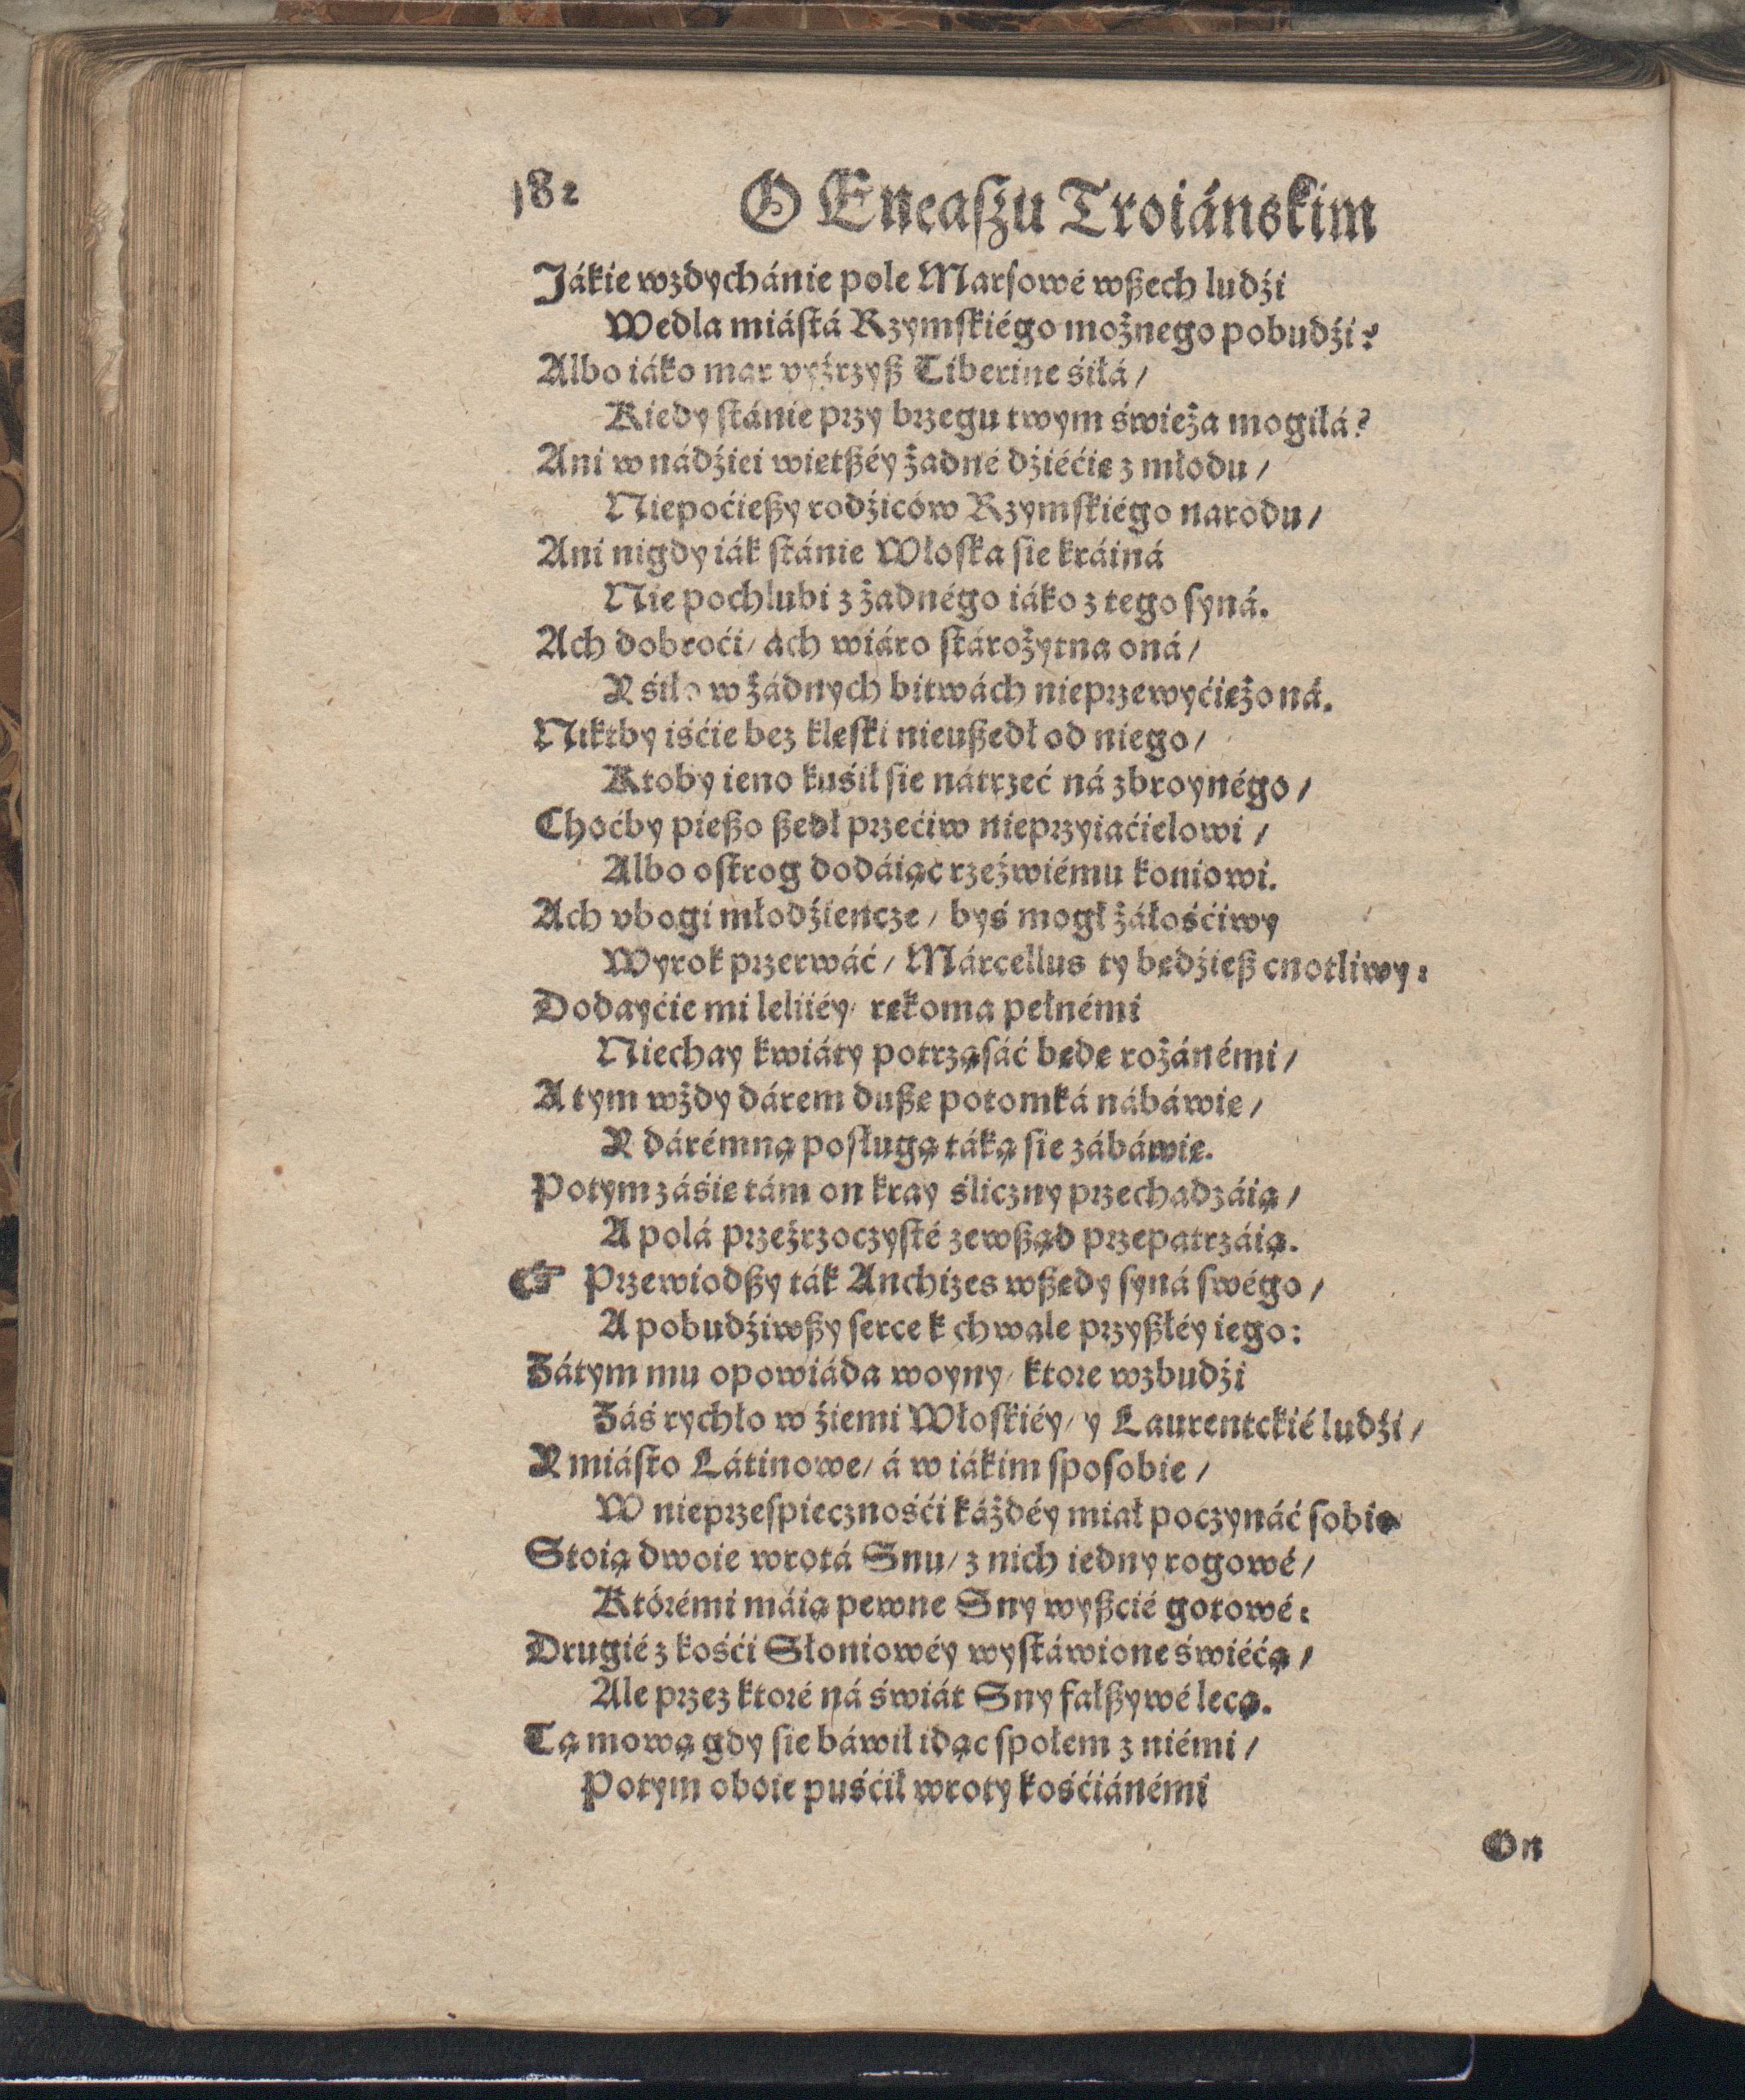 182 O Eneaſzu Troiánskim
Jákie wzdychánie pole Marſowé wßech ludźi
Wedla miáſtá Rzymſkiégo możnego pobudźi?
Albo iáko mar vyźrzyß Tiberine śiłá/
Kiedy ſtánie przy brzegu twym świeża mogiłá?
Ani w nádźiei wietßéy żadné dźiéćię z młodu/
Niepoćießy rodźiców Rzymſkiégo narodu/
Ani nigdy iák ſtánie Włoſka ſie kráiná
Nie pochlubi z żadnégo iáko z tego ſyná.
Ach dobroći/ ach wiáro ſtárożytna oná/
Y śiło w żádnych bitwách nieprzewyćiężoná.
Niktby iśćie bez klęſki nieußedł od niego/
Ktoby ieno kuśił ſie nátrzeć ná zbroynégo/
Choćby pießo ßedł przećiw nieprzyiaćielowi/
Albo oſtrog dodáiąc rzeźwiému koniowi.
Ach vbogi młodźiencze/ byś mogł żáłośćiwy
Wyrok przerwáć/ Márcellus ty będźieß cnotliwy:
Dodayćie mi leliiéy/ rękoma pełnémi
Niechay kwiáty potrząſáć będę rożánémi/
A tym wżdy dárem dußę potomká nábáwię/
Y dárémną poſługą táką ſie zábáwię.
Potym záśię tám on kray śliczny przechadzáią/
A polá przeźrzoczyſté zewßąd przepatrzáią.
☞ Przewiodßy ták Anchizes wßędy ſyná ſwégo/
A pobudźiwßy ſerce k chwale przyßłéy iego:
Zátym mu opowiáda woyny/ ktore wzbudźi
Záś rychło w źiemi Włoſkiéy/ y Laurentckié ludźi/
Y miáſto Látinowe/ á w iákim ſpoſobie/
W nieprzeſpiecznośći káżdéy miał poczynáć ſobie
Stoią dwoie wrotá Snu/ z nich iedny rogowé/
Którémi máią pewne Sny wyßcié gotowé:
Drugié z kośći Słoniowéy wyſtáwione świécą/
Ale przez ktoré ná świát Sny fałßywé lecą.
Tą mową gdy ſie báwił idąc ſpołem z niémi/
Potym oboie puśćił wroty kośćiánémi
On